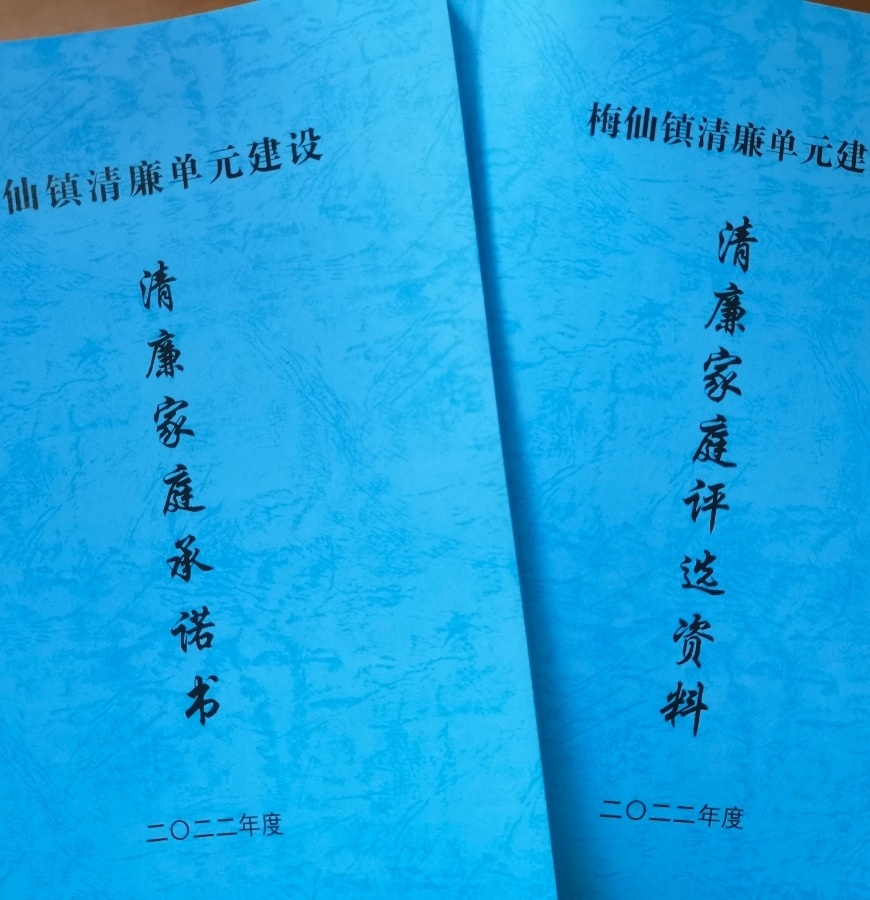 仙镇清廉单元建设
清廉家庭承诺书
二〇二二年度
梅仙镇清廉单元建
清廉家庭评选资料
二〇二二年度